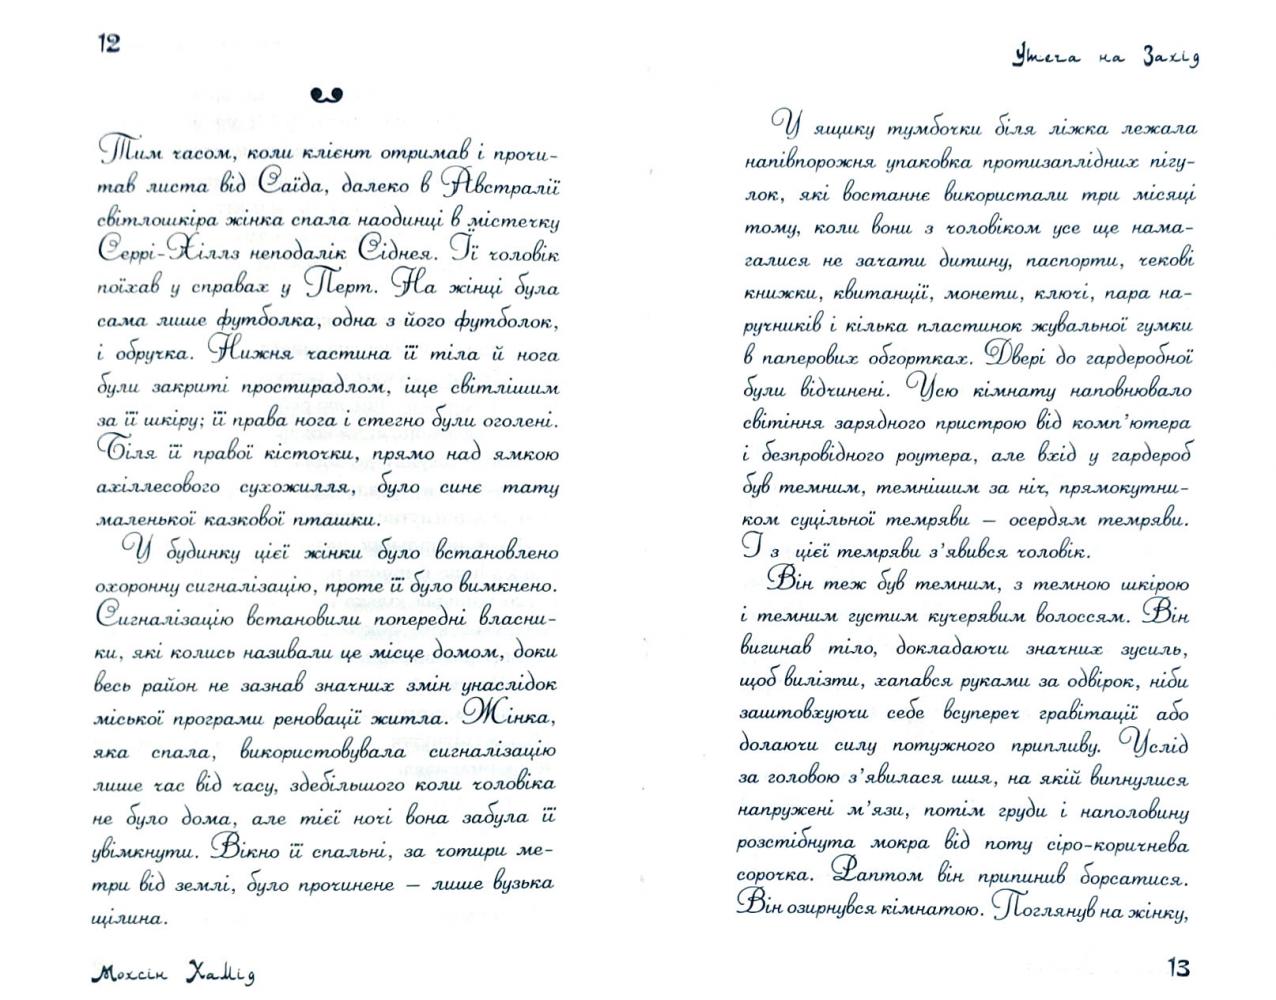 12
Тим часом, коли клієнт отримав і прочи-
тав листа від Саїда, далеко в Австралії
світлошкіра жінка спала наодинці в містечку
Серрі-Хіллз неподалік Сіднея. Її чоловік
поїхав у справах у Перт. На жінці була
сама лише футболка, одна з його футболок,
і обручка. Нижня частина її тіла й нога
були закриті простирадлом, іще світлішим
за її шкіру; її права нога і стегно були оголені.
Біля її правої кісточки, прямо над ямкою
ахіллесового сухожилля, було синє тату
маленької казкової пташки.
У будинку цієї жінки було встановлено
охоронну сигналізацію, проте її було вимкнено.
Сигналізацію встановили попередні власни-
ки, які колись називали це місце домом, доки
весь район не зазнав значних змін унаслідок
міської програми реновації житла. Жінка,
яка спала, використовувала сигналізацію
лише час від часу, здебільшого коли чоловіка
не було дома, але тієї ночі вона забула її
увімкнути. Вікно її спальні, за чотири ме-
три від землі, було прочинене — лише вузька
щілина.
Мохсін Хамід
Утеча на Захід
У ящику тумбочки біля ліжка лежала
напівпорожня упаковка протизаплідних пігу-
лок, які востаннє використали три місяці
тому, коли вони з чоловіком усе ще нама-
галися не зачати дитину, паспорти, чекові
книжки, квитанції, монети, ключі, пара на-
ручників і кілька пластинок жувальної гумки
в паперових обгортках. Двері до гардеробної
були відчинені. Усю кімнату наповнювало
світіння зарядного пристрою від комп’ютера
і безпровідного роутера, але вхід у гардероб
був темним, темнішим за ніч, прямокутни-
ком суцільної темряви — осердям темряви.
І з цієї темряви з’явився чоловік.
Він теж був темним, з темною шкірою
і темним густим кучерявим волоссям. Він
вигинав тіло, докладаючи значних зусиль,
щоб вилізти, хапався руками за одвірок, ніби
заштовхуючи себе всупереч гравітації або
долаючи силу потужного припливу. Услід
за головою з’явилася шия, на якій випнулися
напружені м’язи, потім груди і наполовину
розстібнута мокра від поту сіро-коричнева
сорочка. Раптом він припинив борсатися.
Він озирнувся кімнатою. Поглянув на жінку,
13